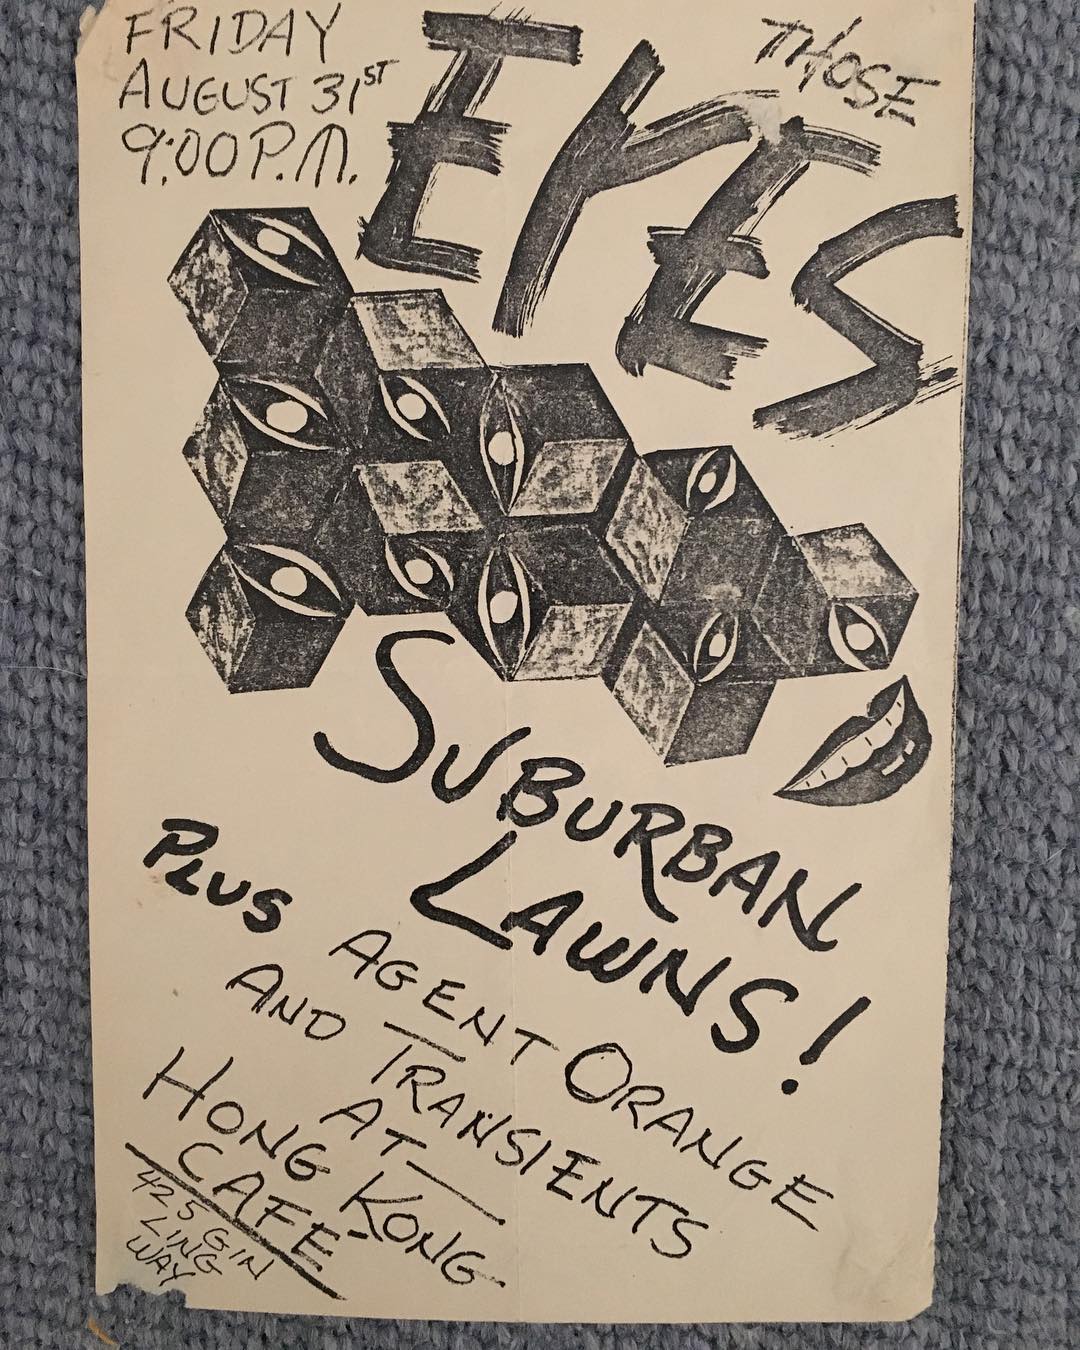 FRIDAY
AUGUST 31ST
9:00 P.M.
THOSE
EYES
SUBURBAN
LAWNS!
PLUS
AGENT ORANGE
AND TRANSIENTS
AT
HONG KONG
CAFE
425 GIN
LING
WAY